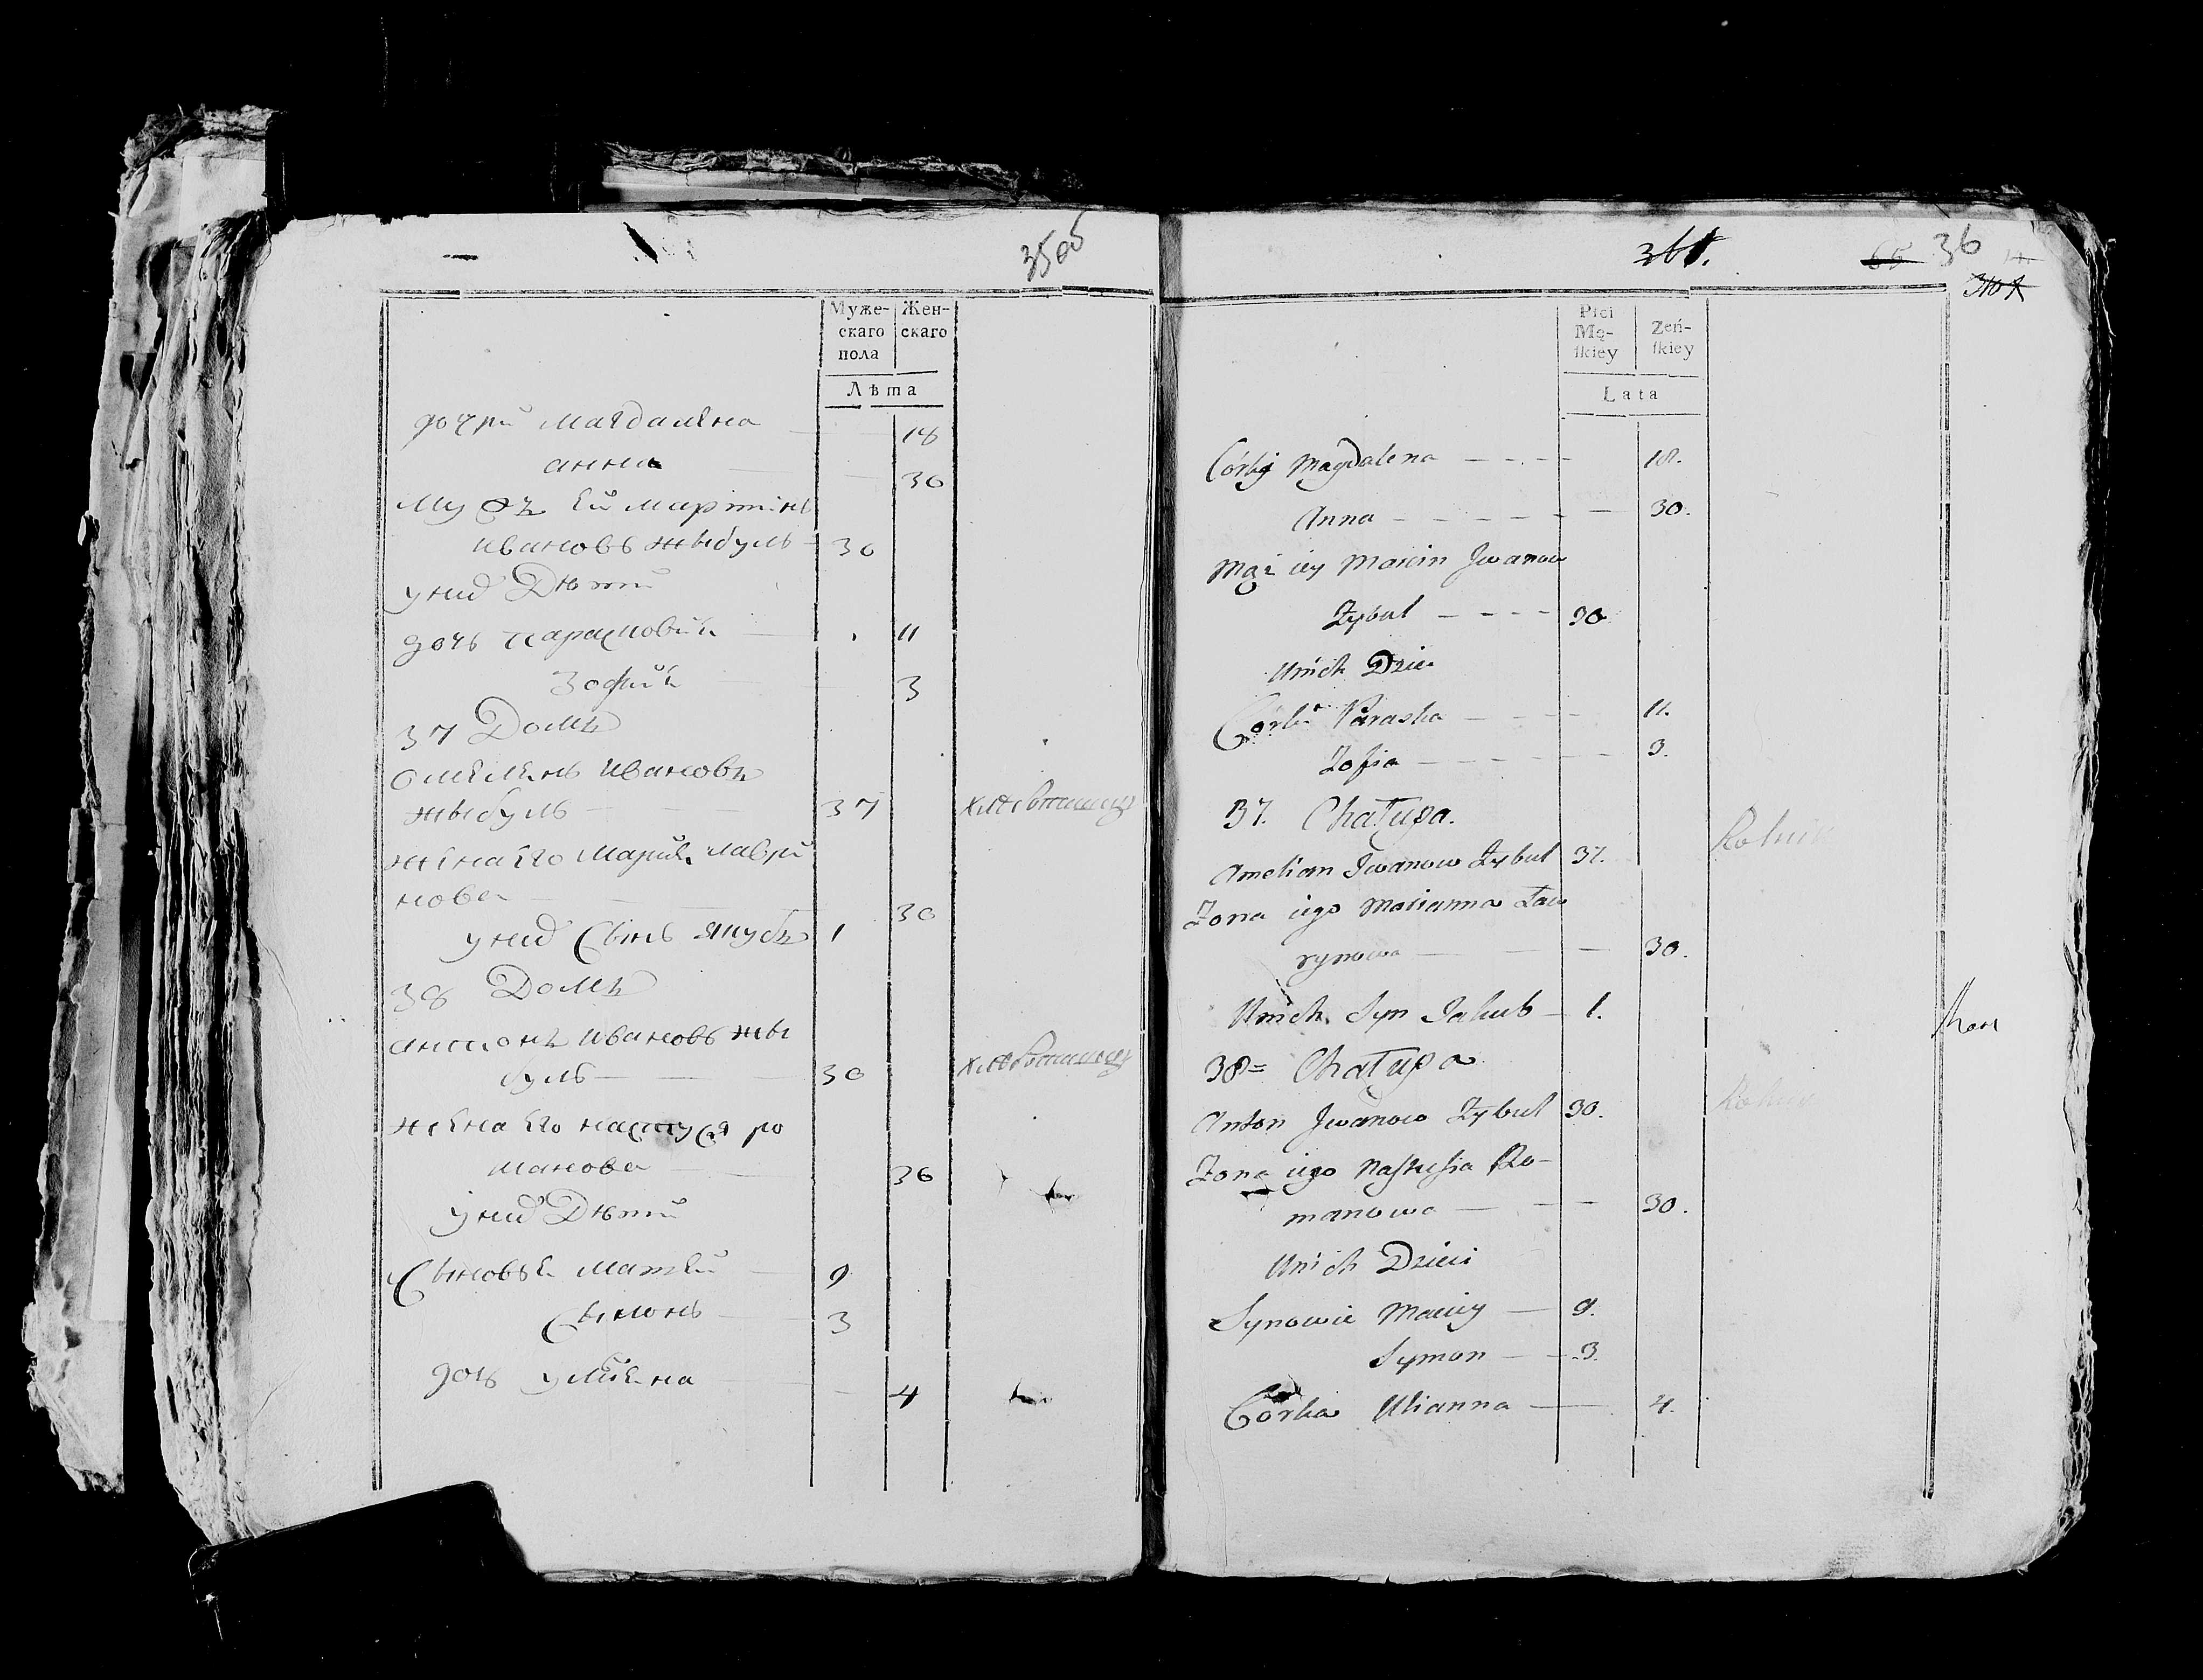 35об
Муже-
скаго
пола
Жен-
скаго
Лѣта
дочри Магдалена 18
анна 30
Мужъ ей Мартинъ
Ивановъ Жыбуль 30
у нид Дѣти
дочь Парасковия 11
Зофия 3
37 Домъ
Омелянъ Ивановъ
Жыбуль 37
жена его Мария Лаври
нова 30
у нид Сынъ Якубъ 1
38 Домъ
Антонъ Ивановъ Жы
буль 30
жена его Настуся Ро
манова 30
у нид Дѣти
Сыновья Матвей 9
Сымонъ 3
дочь Улияна 4
36
Płci
Mę-
ſkiey
Zeń-
ſkiey
Lata
Córky Magdalena 18.
Anna 30.
Mąż iey Marcin Jwanow
Zybul 30
Unich Dzie
Córka Paraska 11.
Zofia 3.
37. Chałupa.
Amelian Jwanow Zybul 37. Rolnik
Zona iego Marianna Law
rynowa 30.
Unich Syn Jakub 1.
38= Chałupa
Anton Jwanow Zybul 30.
Zona iego Naſtuſia Ro-
manowa 30.
Unich Dzieci
Synowie Maciey 9.
Symon 3.
Córka Ulianna 4.